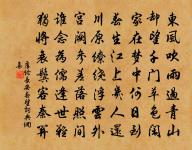 東風吹雨過青山
却望千門草色閑
家在夢中何日到
春生江上幾人還
川原繚繞浮雲外
宮闕參差落照間
誰念為儒逢世難
獨將衰鬢客秦關
盧綸長安春望